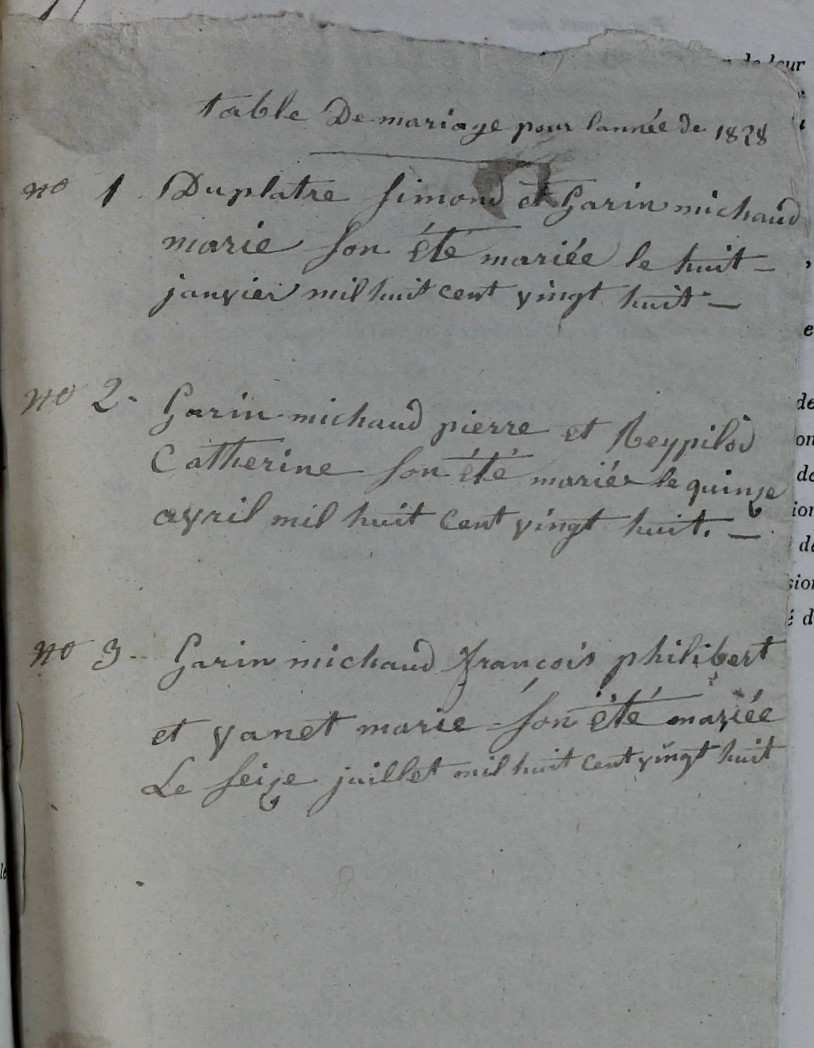 table De mariage pour lannée de 1828
no 1. Duplatre simond et Garin michaud
marie son été mariée le huit -
janvier mil huit cent vingt huit -
no 2 - Garin michaud pierre et Reypilod
Catherine son été mariés le quinze
avril mil huit cent vingt huit. -
no 3 - Garin michaud françois philibert
et vanet marie - son été mariée
Le seize juillet mil huit cent vingt huit
de leur